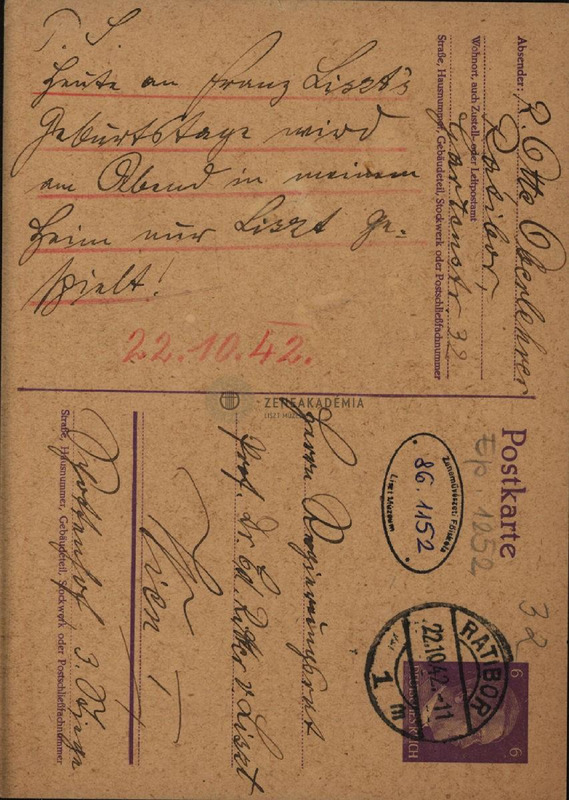 T. S.
Heute an Franz Liszt's
Geburtstage wird
am Abend in meinem
Heim nur Liszt ge-
spielt!
22.10.42.
Absender: R. Otte Oberlehrer
Ratibor,
Wohnort, auch Zustell- oder Leitpostamt
Gartenstr. 32
Straße, Hausnummer, Gebäudeteil, Stockwerk oder Postschließfachnummer
Postkarte
Ep. 1252
32
Zeneművészeti Főiskola
86.1152
Liszt Múzeum
RATIBOR
22.10.42.-11
1
m
6
6
DEUTSCHES REICH
ZENEAKADÉMIA
LISZT MÚZEUM
Herrn Regierungsrat
Prof. Dr. Ed. Ritter v. Liszt
Wien I
Schottenhof 3. Stiege
Straße, Hausnummer, Gebäudeteil, Stockwerk oder Postschließfachnummer